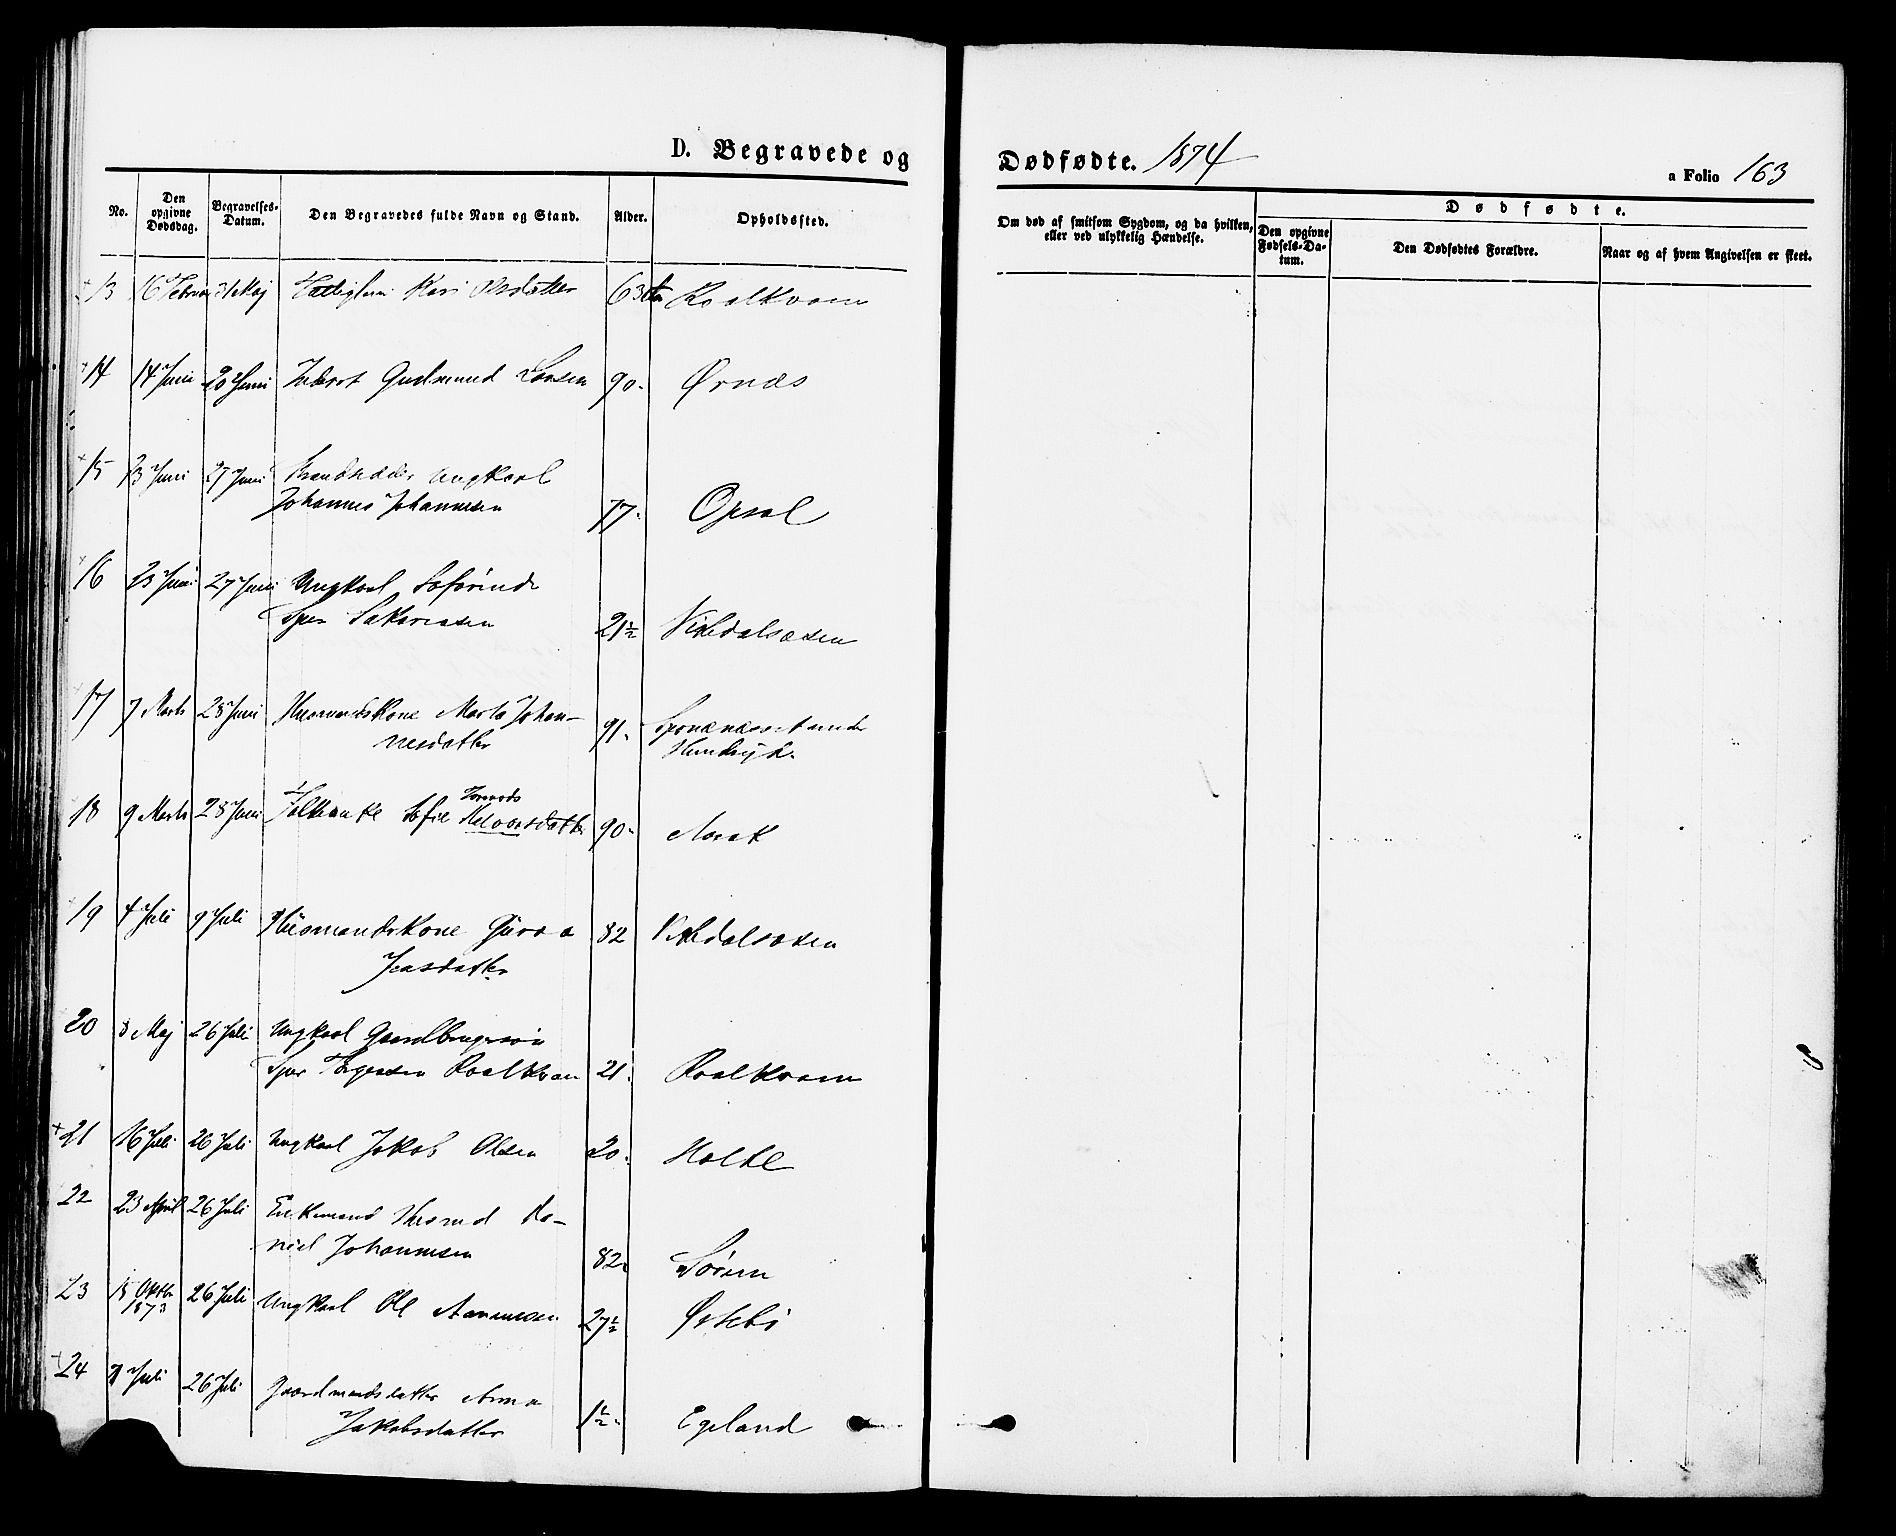 D. Begravede og Dødfødte. 1874
a Folio 163
No. Den opgivne Dødsdag. Begravelses-Datum. Den Begravedes fulde Navn og Stand. Alder. Opholdssted.
Om død af smitsom Sygdom, og da hvilken, eller ved ulykkelig Hændelse.
Dødfødte.
Den opgivne Fødsels-Datum. Den Dødfødtes Forældre. Naar og af hvem Angivelsen er skeet.
13 16 Februar Maj Kari Olsdatter 63 Roalkvam
14 14 Juni 20 Juni Inderst Gudmund Larsen 90 Ørnæs
15 Juni 27 Juni Ungkarl
Johannes Johannesen 77 Opsal
16 23 Juni 27 Juni Ungkarl
Sjur Sakariasen 21½ Vikedalsosen
17 7 Marts 28 Juni Husmandskone Marta Johan-
nesdatter 91
18 9 Marts 28 Juni Sofie Halvorsdatter 90
19 4 Juli 9 Juli Husmandskone Guroa 82 Vikedalsosen
Jensdatter
20 8 Maj 26 Juli Ungkarl Gaardbrugersøn
Sjur Roalkvam 21 Roalkvam
21 16 Juli 26 Juli Ungkarl Jakob Olsen 20
22 23 April 26 Juli Enkemand Husmd Da-
niel Johannesen 82
23 15 Oktbr 1873 26 Juli Ungkarl Ole 27½ Østebø
24 Juli 26 Juli Gaardmandsdatter Anna
Jakobsdatter 1½ Egeland